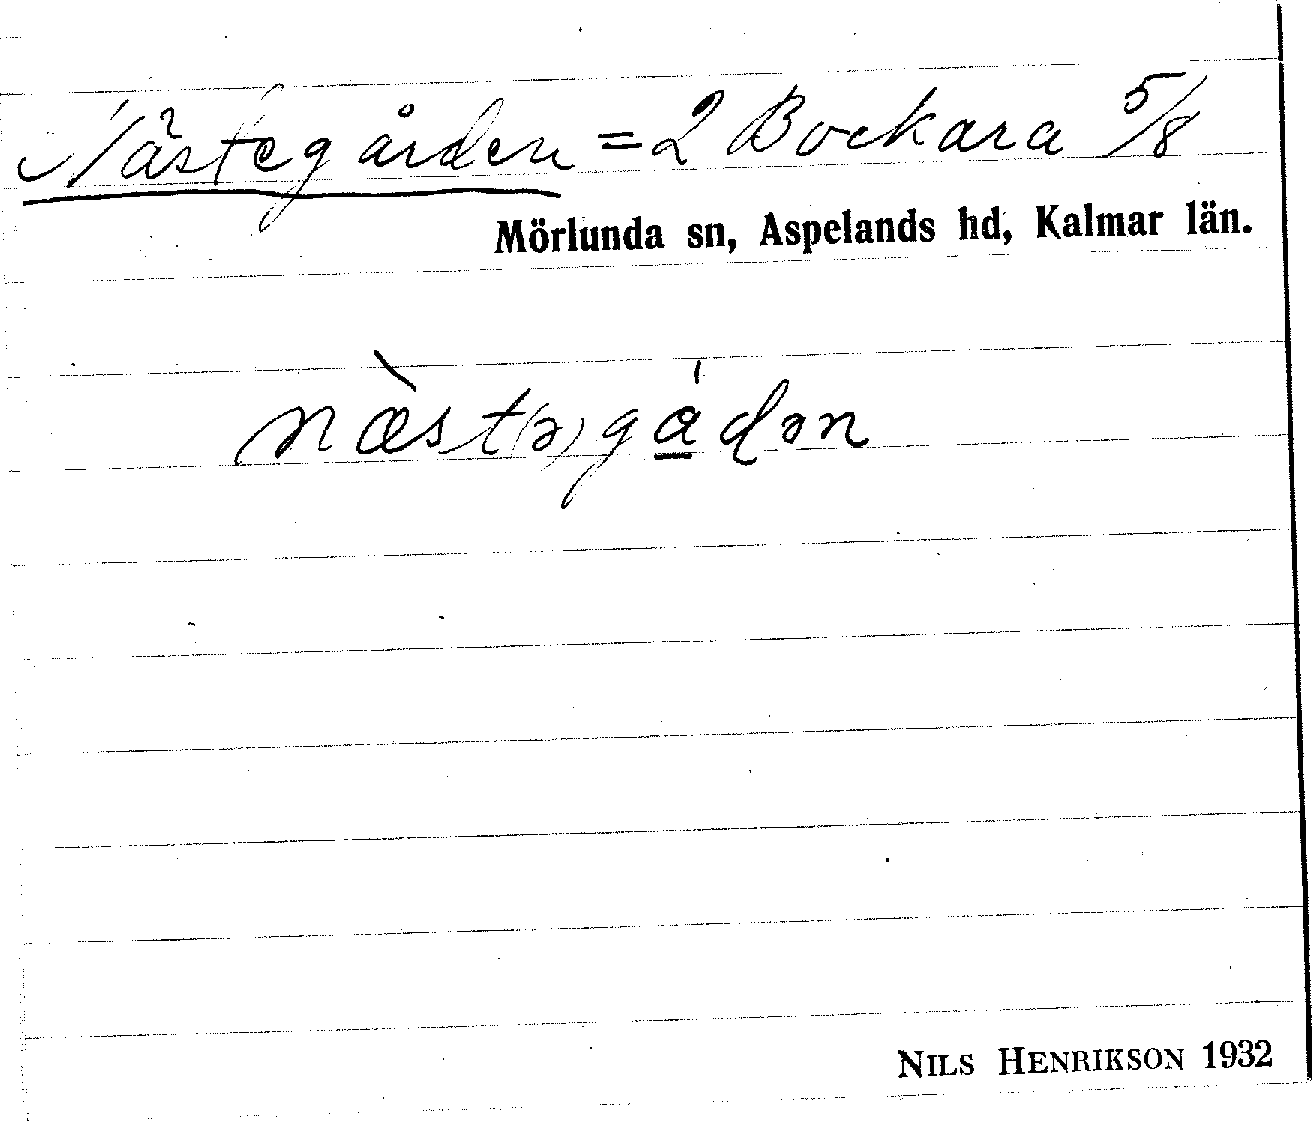 Nästegården = 2 Bockara 5/8
Mörlunda sn, Aspelands hd, Kalmar län.
næ̀st(ə)gá̱dən
NILS HENRIKSON 1932